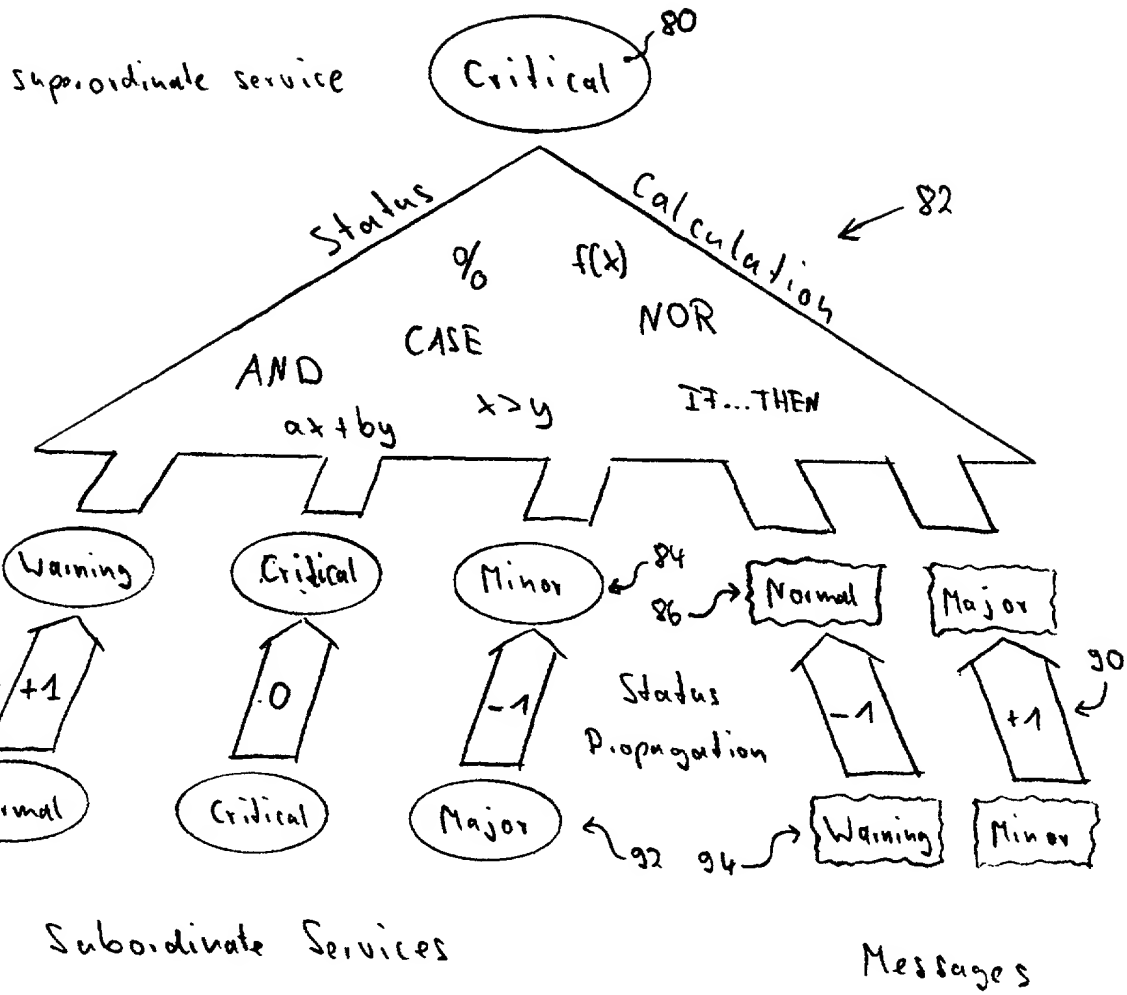 80
superordinate service
Critical
Status
Calculation
82
%
f(x)
NOR
CASE
AND
IF...THEN
x>y
ax+by
Warning
Critical
Minor
84
86
Normal
Major
+1
0
-1
Status
Propagation
-1
+1
90
rmal
Critical
Major
92
94
Warning
Minor
Subordinate Services
Messages